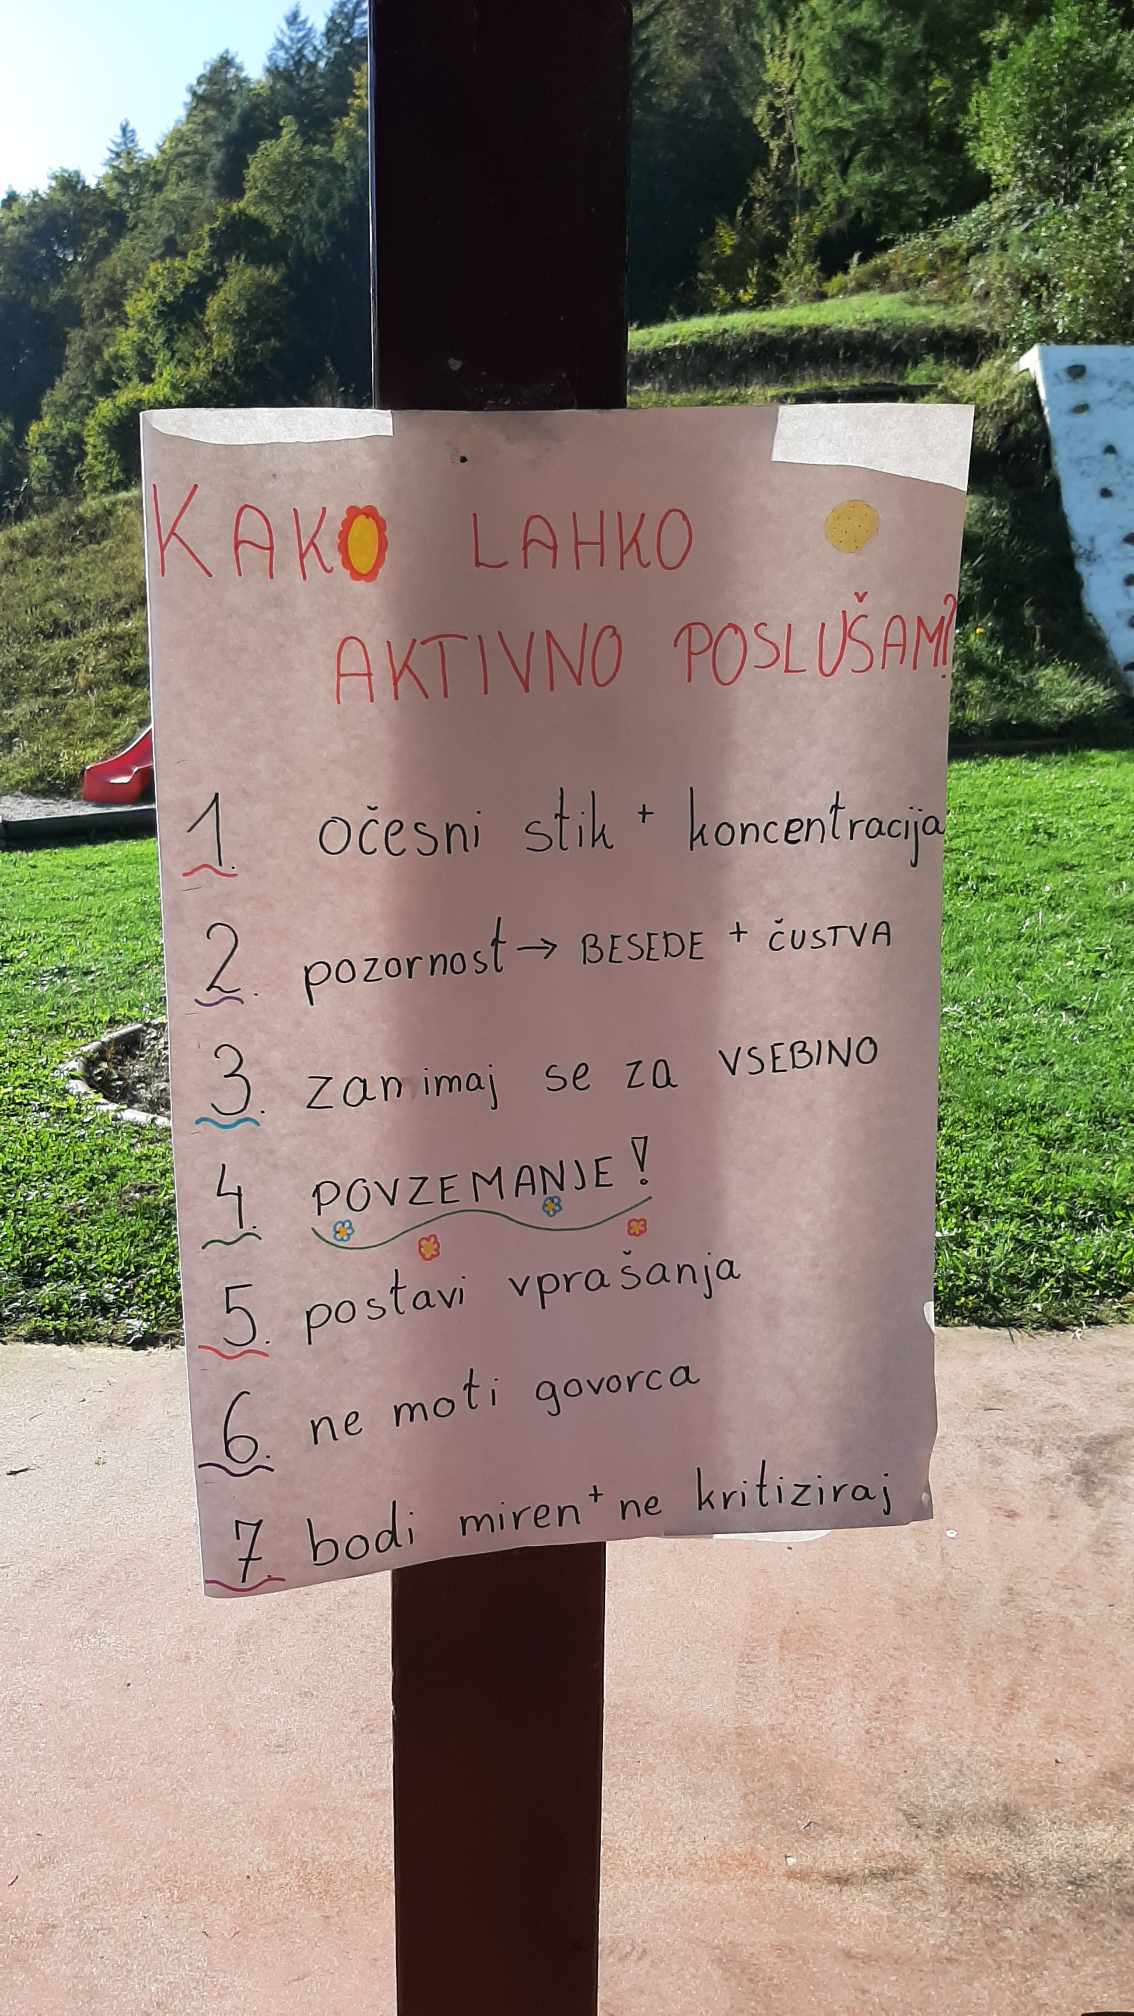 KAKO LAHKO
AKTIVNO POSLUŠAM?
1. očesni stik + koncentracija
2. pozornost → BESEDE + ČUSTVA
3. zanimaj se za VSEBINO
4. POVZEMANJE!
5. postavi vprašanja
6. ne moti govorca
7. bodi miren + ne kritiziraj